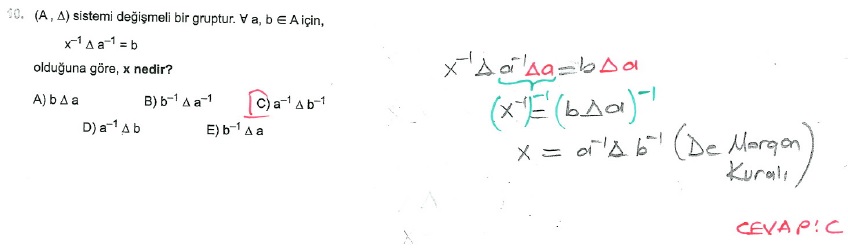 10. (A , Δ) sistemi değişmeli bir gruptur. ∀ a, b ∈ A için,
x⁻¹ Δ a⁻¹ = b
olduğuna göre, x nedir?
A) b Δ a B) b⁻¹ Δ a⁻¹ C) a⁻¹ Δ b⁻¹
D) a⁻¹ Δ b E) b⁻¹ Δ a
x⁻¹ Δ a⁻¹ Δ a = b Δ a
(x⁻¹)⁻¹ = (b Δ a)⁻¹
x = a⁻¹ Δ b⁻¹ (De Morgan
Kuralı)
CEVAP: C